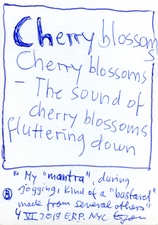 Cherry blossoms
Cherry blossoms
- The sound of
cherry blossoms
fluttering down
" My "mantra", during
jogging; kind of a "bastard"
made from several others"
4 VI 2019 E.R.P. NYC